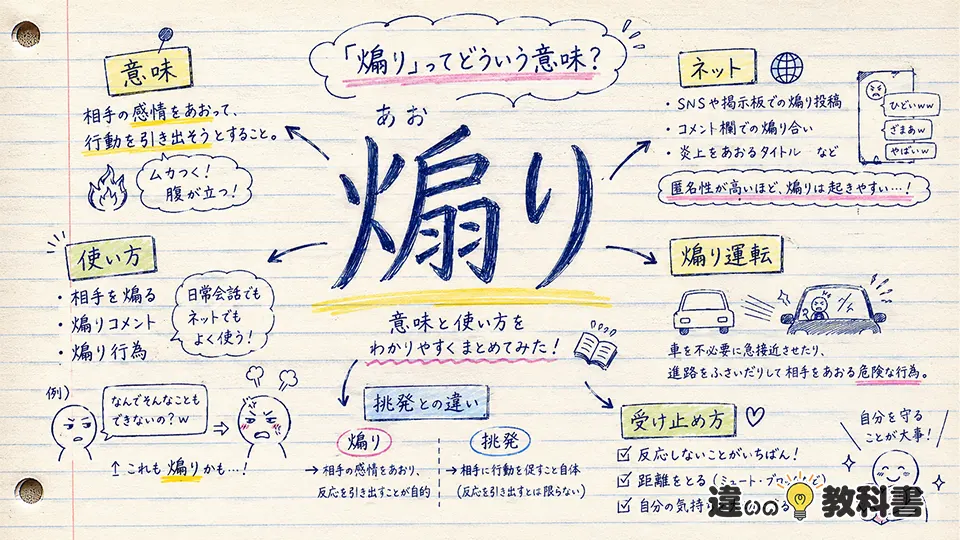 「煽り」ってどういう意味?
意味
相手の感情をあおって、
行動を引き出そうとすること。
ムカつく!
腹が立つ!
使い方
・相手を煽る
・煽りコメント
・煽り行為
日常会話でも
ネットでも
よく使う!
例)
なんでそんなことも
できないの?w
↑ これも 煽りかも…!
あお
煽り
意味と使い方を
わかりやすくまとめてみた!
挑発との違い
煽り
→ 相手の感情をあおり、
反応を引き出すことが目的
挑発
→ 相手に行動を促すこと自体
(反応を引き出すとは限らない)
ネット
・SNSや掲示板での煽り投稿
・コメント欄での煽り合い
・炎上をあおるタイトル など
ひどいww
ざまあw
やばいw
匿名性が高いほど、煽りは起きやすい…!
煽り運転
車を不必要に急接近させたり、
進路をふさいだりして相手をあおる危険な行為。
受け止め方
☑ 反応しないことがいちばん!
☑ 距離をとる(ミュート・ブロ
☑ 自分の気持
自分を守る
ことが大事!
違いの教科書